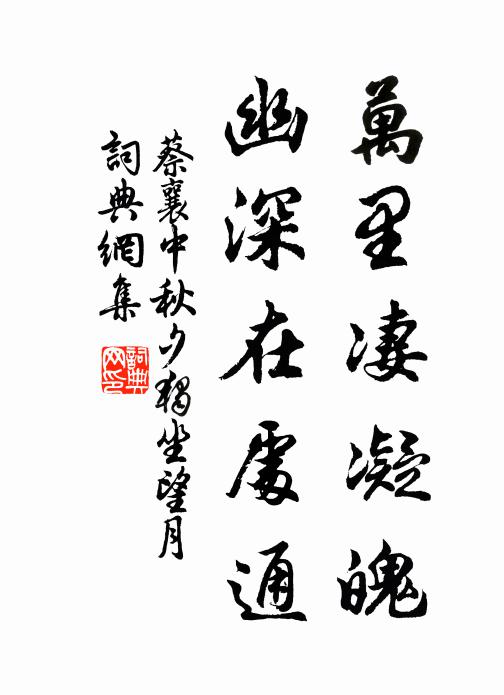 萬里凄凝魄
幽深在處通
蔡襄中秋夕獨坐望月
詞典網集
詞典网印